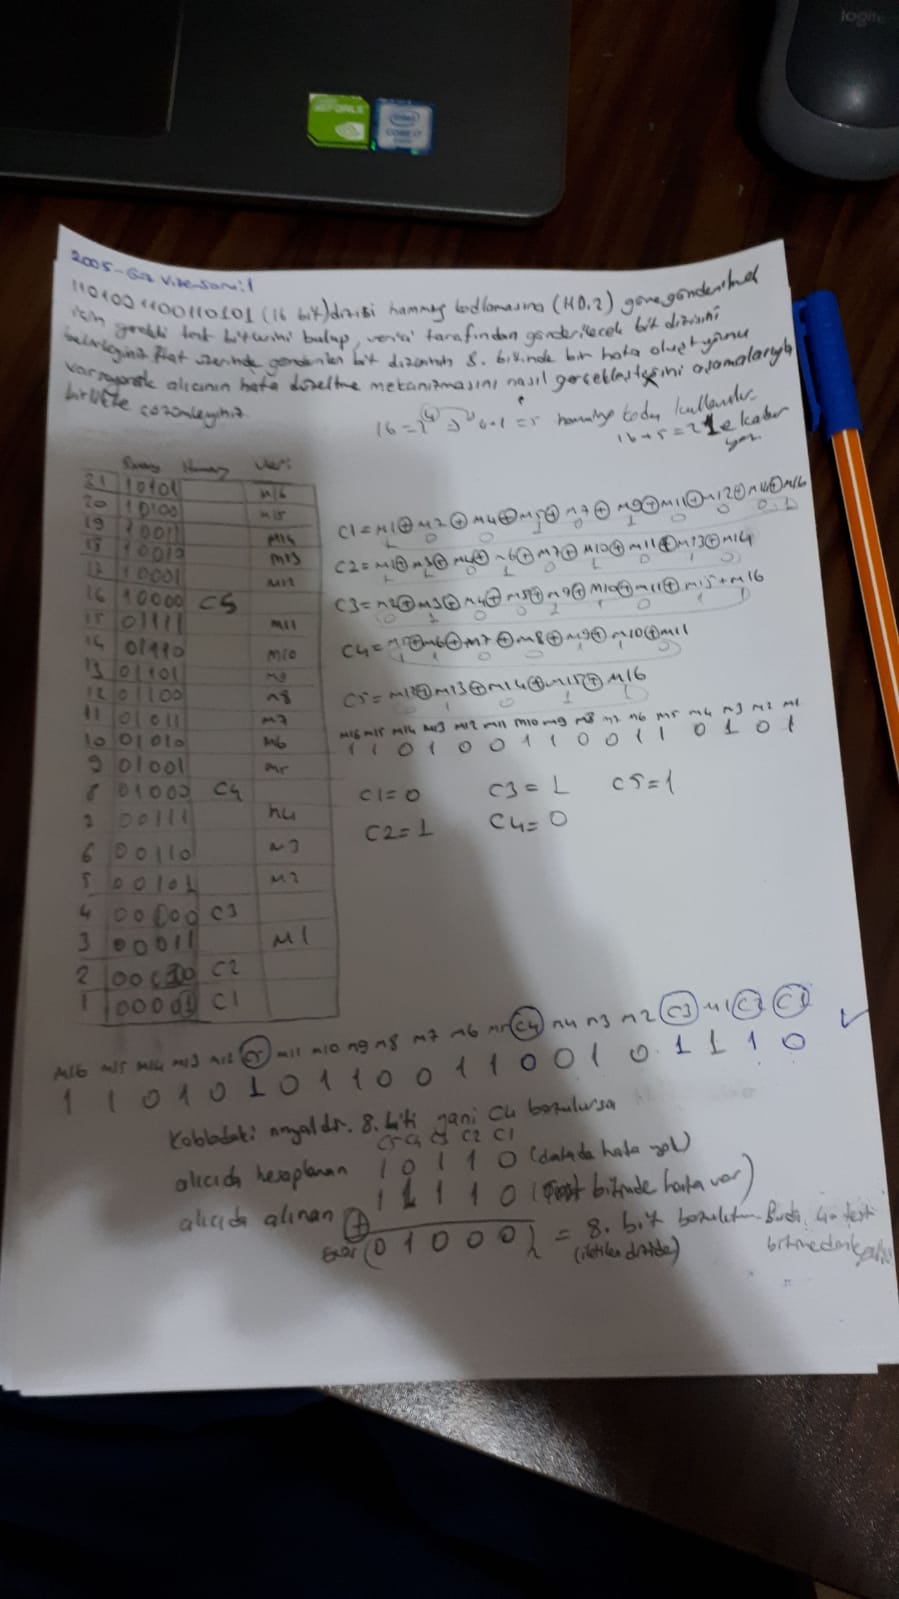 logite
GEFORCE
intel
CORE i7
2005-Güz Vize Soru:1
1101001100110101 (16 bit) dizisi hamming kodlamasına (HD,2) göre gönderilmek
için gerekli test bitlerini bulup, verici tarafından gönderilecek bit dizisini
belirleyiniz. Hat üzerinde gönderilen bit dizisinin 8. bitinde bir hata oluştuğunu
varsayarak alıcının hata düzeltme mekanizmasını nasıl gerçekleştiğini aşamalarıyla
birlikte çözümleyiniz.
16=2^4 => 4+1=5 hamming kodu kullanılır
16+5=21 e kadar
Binary Hamming Veri
21 10101 M16
20 10100 M15
19 10011 M14
18 10010 M13
17 10001 M12
16 10000 C5
15 01111 M11
14 01110 M10
13 01101 M9
12 01100 M8
11 01011 M7
10 01010 M6
9 01001 M5
8 01000 C4
7 00111 M4
6 00110 M3
5 00101 M2
4 00100 C3
3 00011 M1
2 00010 C2
1 00001 C1
C1=M1⊕M2⊕M4⊕M5⊕M7⊕M9⊕M11⊕M12⊕M14⊕M16
C2=M1⊕M3⊕M4⊕M6⊕M7⊕M10⊕M11⊕M13⊕M14
C3=M2⊕M3⊕M4⊕M8⊕M9⊕M10⊕M11⊕M15+M16
C4=M5⊕M6⊕M7⊕M8⊕M9⊕M10⊕M11
C5=M12⊕M13⊕M14⊕M15⊕M16
M16 M15 M14 M13 M12 M11 M10 M9 M8 M7 M6 M5 M4 M3 M2 M1
1 1 0 1 0 0 1 1 0 0 1 1 0 1 0 1
C1=0 C3=1 C5=1
C2=1 C4=0
M16 M15 M14 M13 M12 C5 M11 M10 M9 M8 M7 M6 M5 C4 M4 M3 M2 C3 M1 C2 C1
1 1 0 1 0 1 0 1 1 0 0 1 1 0 0 1 0 1 1 1 0
8. biti yani C4 bozulursa
C5 C4 C3 C2 C1
alıcıda hesaplanan 1 0 1 1 0 (datada hata yok)
alıcıda alınan 1 1 1 1 0 (Test bitinde hata var)
⊕
Error (0 1 0 0 0)2 = 8. bit
(iletilen dizide)